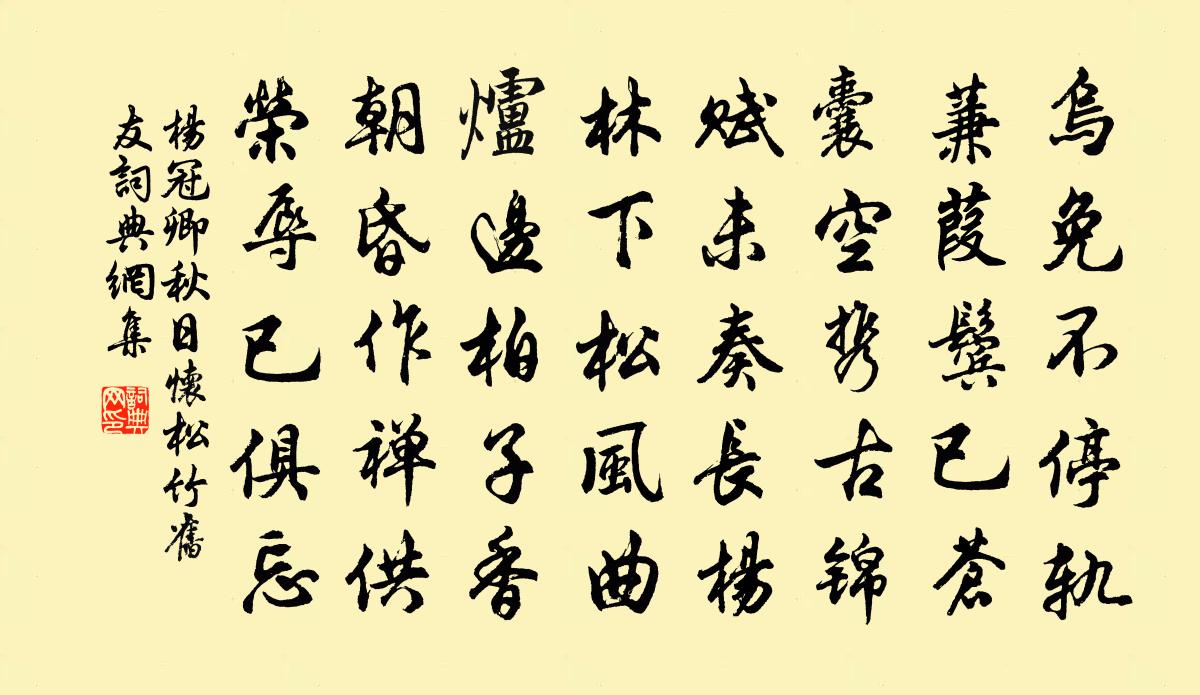 烏免不停軌
蒹葭鬢已蒼
囊空携古锦
赋未奏長楊
林下松風曲
爐邊柏子香
朝昏作禅供
榮辱已俱忘
楊冠卿秋日懷松竹舊
友詞典網集
詞典
网印